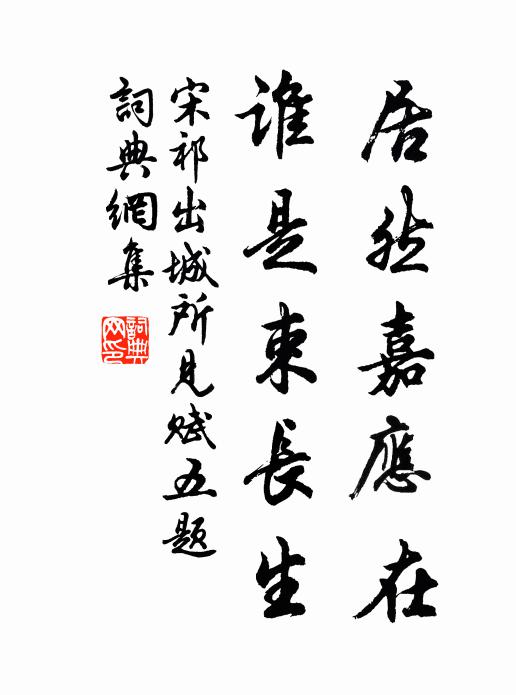 居然嘉應在
誰是束長生
宋祁出城所見賦五題
詞典網集
詞典网印